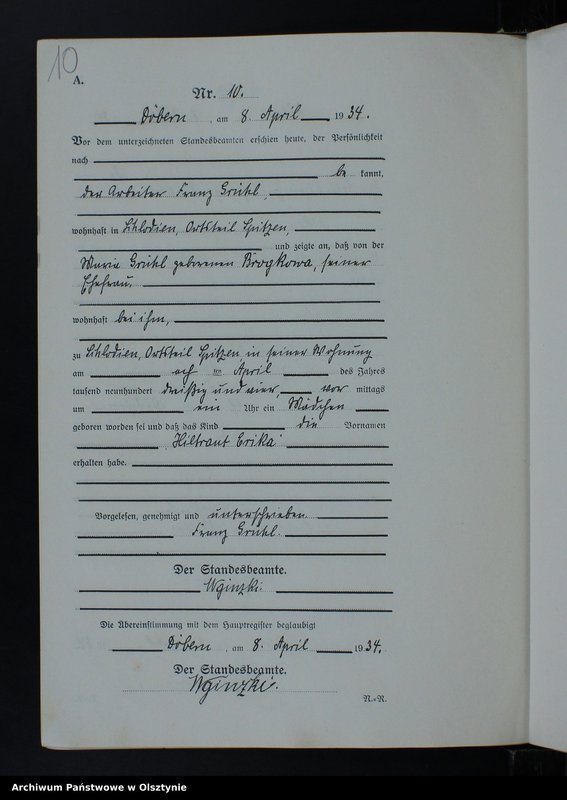 10
A.
Nr. 10.
Döbern, am 8. April 1934.
Vor dem unterzeichneten Standesbeamten erschien heute, der Persönlichkeit
nach
be kannt,
der Arbeiter Franz
wohnhaft in Schlodien, Ortsteil Spitzen,
und zeigte an, daß von der
Maria geborenen Brogkowa, seiner
Ehefrau,
wohnhaft bei ihm,
zu Schlodien, Ortsteil Spitzen, in seiner Wohnung
am ten April des Jahres
tausend neunhundert dreißig und vier, vor mittags
um ein Uhr ein Mädchen
geboren worden sei und daß das Kind die Vornamen
Hiltraut Erika
erhalten habe.
Vorgelesen, genehmigt und unterschrieben.
Franz
Der Standesbeamte.
Wginzki.
Die Übereinstimmung mit dem Hauptregister beglaubigt
Döbern, am 8. April 1934.
Der Standesbeamte.
Wginzki.
N.-R.
Archiwum Państwowe w Olsztynie